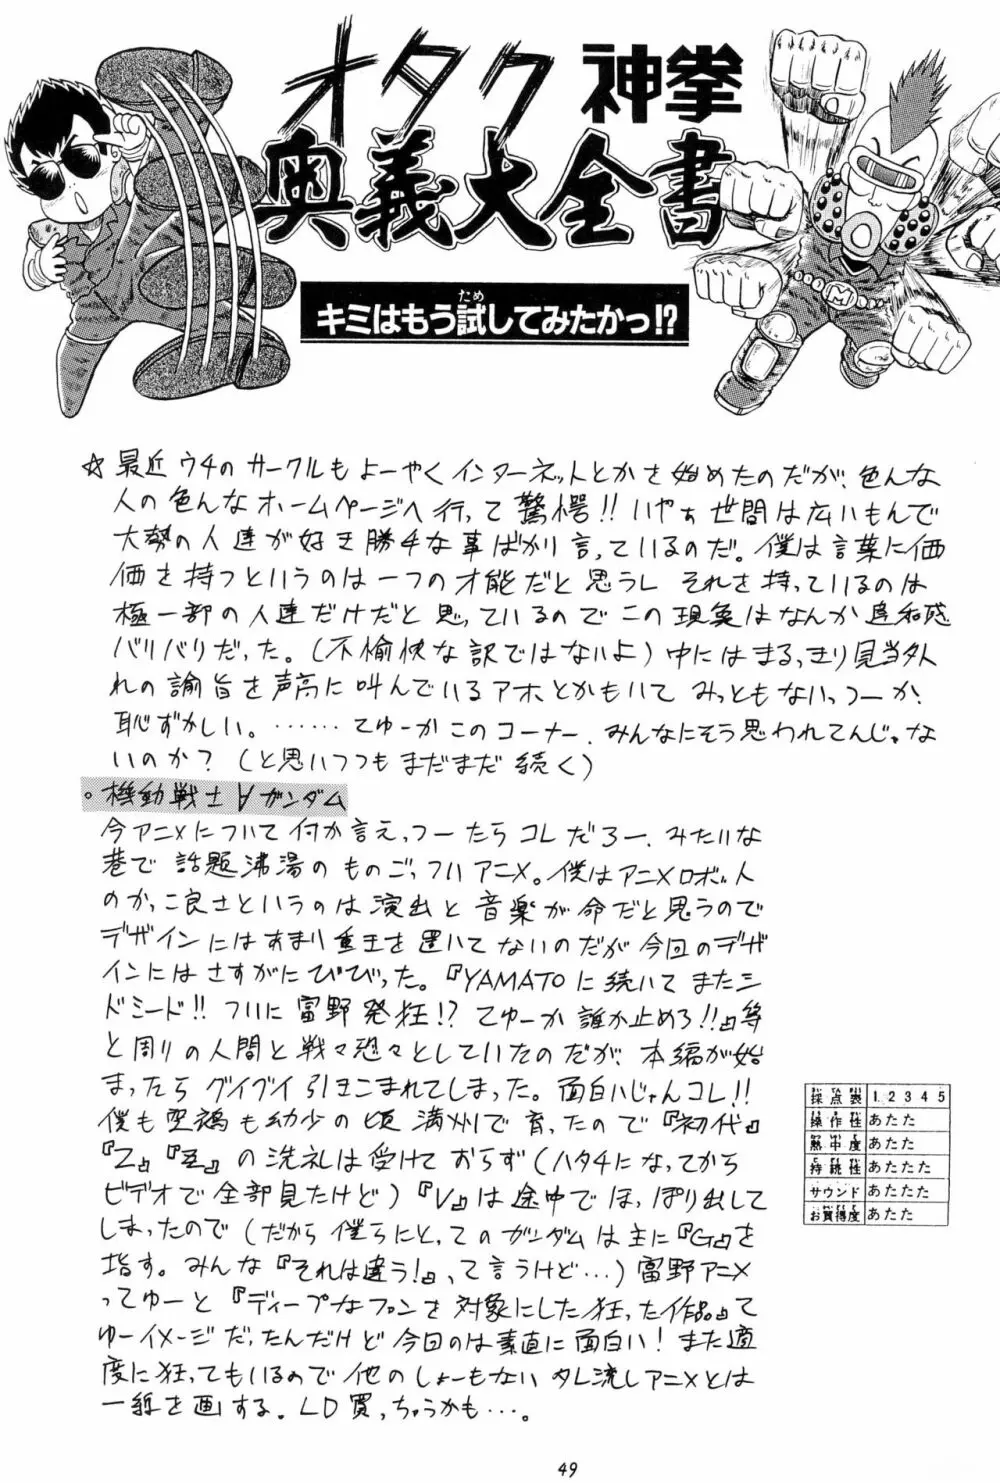 オタク神拳
奥義大全書
キミはもう試してみたかっ!?
ため
☆最近ウチのサークルもよーやくインターネットとかを始めたのだが、色んな
人の色んなホームページへ行って驚愕!!いやぁ世間は広いもんで
大勢の人達が好き勝手な事ばかり言っているのだ。僕は言葉に価
価を持つというのは一つの才能だと思うし それを持っているのは
極一部の人達だけだと思っているのでこの現象はなんか違和感
バリバリだった。(不愉快な訳ではないよ)中にはまるっきり見当外
れの論旨を声高に叫んでいるアホとかもいて みっともないっつーか、
恥ずかしい。……てゆーかこのコーナー、みんなにそう思われてんじゃな
いのか?(と思いつつもまだまだ続く)
。機動戦士∀ガンダム
今アニメについて何か言えっつーたらコレだろー、みたいな
巷で話題沸湯のものごっついアニメ。僕はアニメロボ人
のかっこ良さというのは演出と音楽が命だと思うので
デザインにはあまり重王を置いてないのだが今回のデザ
インにはさすがにびびった。『YAMATOに続いてまたシ
ドミード!!ついに富野発狂!?てゆーか誰か止めろ!!』等
と周りの人間と戦々恐々としていたのだが、本編が始
まったらグイグイ引きこまれてしまった。面白いじゃんコレ!!
僕も空鵺も幼少の頃満州で育ったので『初代』
『Z』『ZZ』の洗礼は受けておらず(ハタチになってから
ビデオで全部見たけど)『V』は途中でほっぽり出して
しまったので(だから僕らにとってのガンダムは主に『G』を
指す。みんな『それは違う!』って言うけど…)富野アニメ
ってゆーと『ディープなファンを対象にした狂った作品』て
ゆーイメージだったんだけど今回のは素直に面白い!また適
度に狂ってもいるので他のしょーもないタレ流しアニメとは
一線を画する。LD買っちゃうかも…。
採点表 1 2 3 4 5
操作性 あたた
熱中度 あたた
持続性 あたたた
サウンド あたたた
お買得度 あたた
M
49